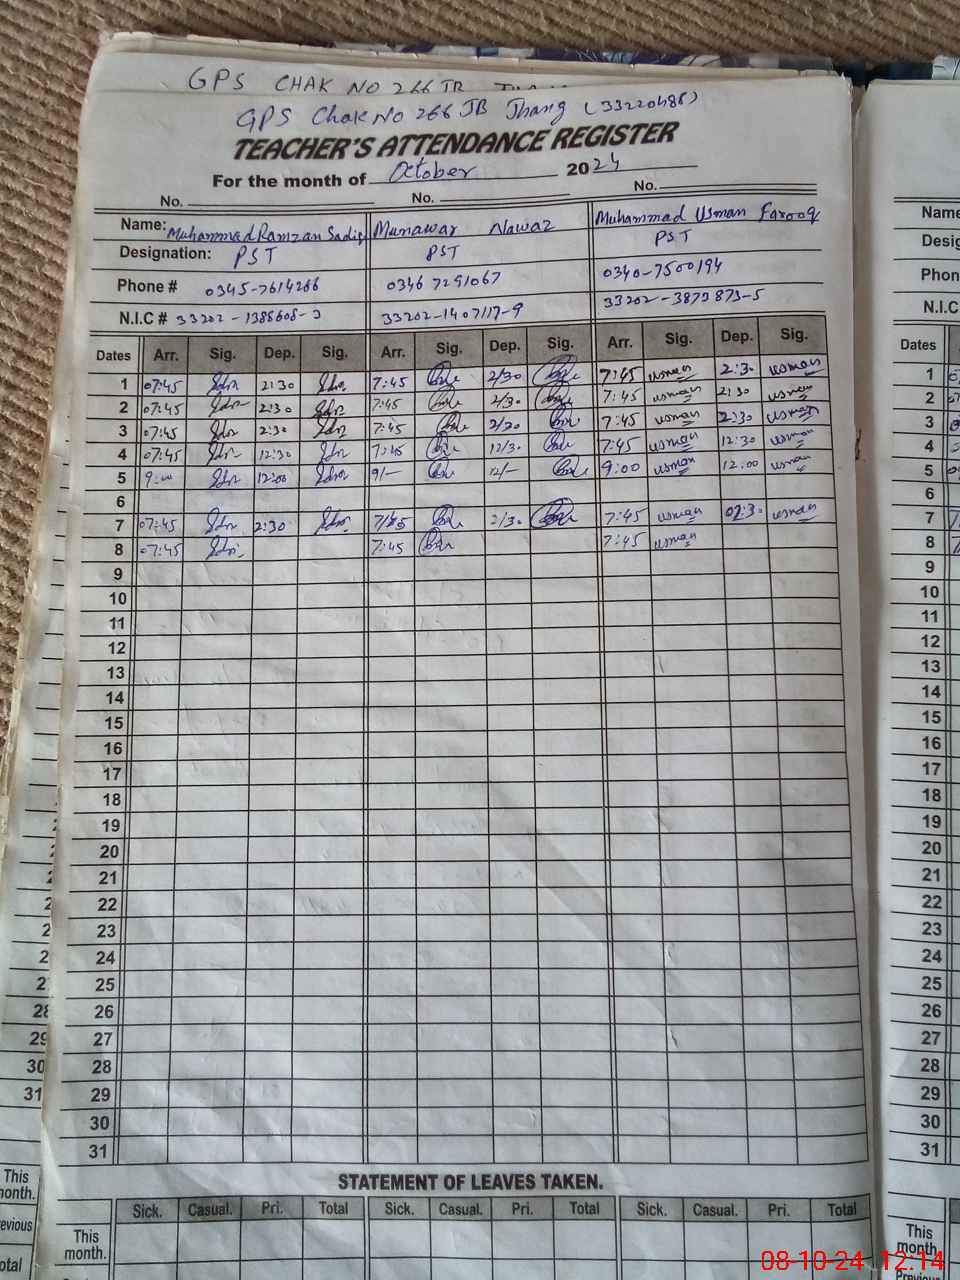 GPS CHAK NO 266 JB
GPS Chak No 266 JB Jhang (33220486)
TEACHER'S ATTENDANCE REGISTER
For the month of October 2024
No. No. No.
Name: Muhammad Ramzan Sadiq Munawar Nawaz Muhammad Usman Farooq
Designation: PST PST PST
Phone # 0345-7614266 0346 7291067 0340-7500194
N.I.C # 33202-1388608-3 33202-1407117-9 33202-3873873-5
Dates Arr. Sig. Dep. Sig. Arr. Sig. Dep. Sig. Arr. Sig. Dep. Sig.
1 07:45 2:30 7:45 2/30 7:45 usman 2:30 usman
2 07:45 2:30 7:45 2/30 7:45 usman 2:30 usman
3 07:45 2:30 7:45 2/30 7:45 usman 2:30 usman
4 07:45 12:30 7:45 12/30 7:45 usman 12:30 usman
5 9:00 12:00 9/— 12/— 9:00 usman 12:00 usman
6
7 07:45 2:30 7/45 2/30 7:45 usman 02:30 usman
8 07:45 7:45 7:45 usman
9
10
11
12
13
14
15
16
17
18
19
20
21
22
23
24
25
26
27
28
29
30
31
STATEMENT OF LEAVES TAKEN.
Sick. Casual. Pri. Total Sick. Casual. Pri. Total Sick. Casual. Pri. Total
This
month.
28
29
30
31
This
month.
Name
Phon
N.I.C
Dates
1
2
3
4
5
6
7
8
9
10
11
12
13
14
15
16
17
18
19
20
21
22
23
24
25
26
27
28
29
30
31
This
month.
Previous
08-10-24 12:14